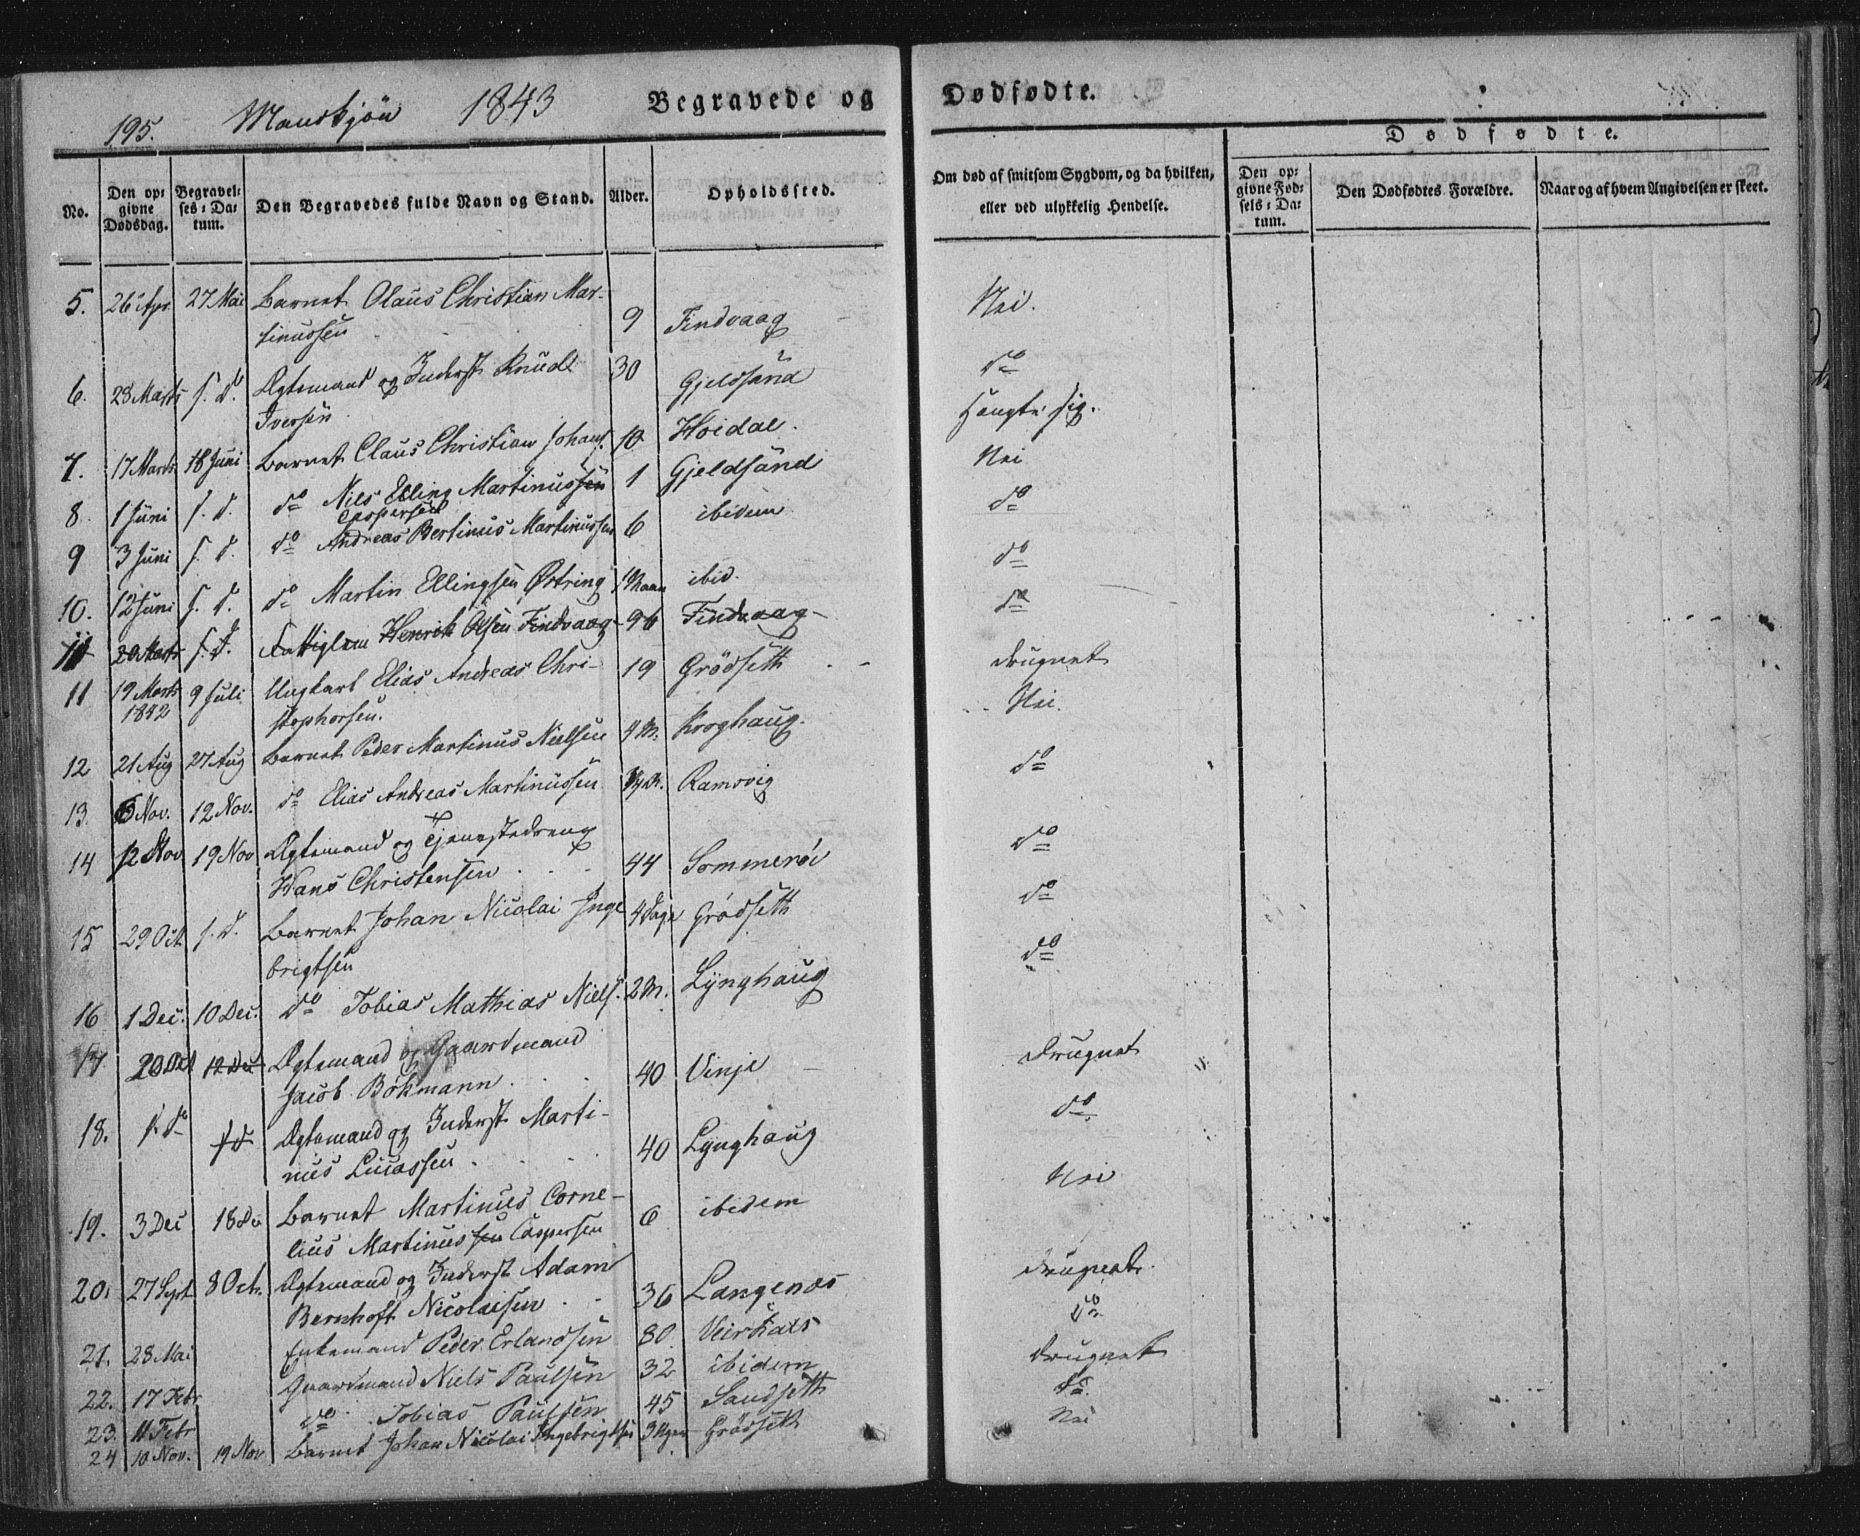 195. Mandkjøn 1843 Begravede og Dødfødte.
Dødfødte.
No. Den opgivne Dødsdag. Begravelses-Datum. Den Begravedes fulde Navn og Stand. Alder. Opholdssted. Om død af smitsom Sygdom, og da hvilken, eller ved ulykkelig Hendelse. Den opgivne Fødsels-Datum. Den Dødfødtes Forældre. Naar og af hvem Angivelsen er skeet.
5. 26 Apr 27 Mai Barnet Olaus Christian Mar-
tinussen 9 Findvaag Nei.
6. 28 Marts s. d. Ægtemand og Inderst Knudt 30 Gjeldsand do
Iversen Hængte sig.
7. 17 Marts 18 Juni Barnet Claus Christian Johans. 10 Hoidal. Nei
8. 1 Juni s. d. do Nils Elling Martinussen 1 Gjeldsand do
Caspersen
9 3 Juni s. d. do Andreas Bertinus Martinussen 6 ibidem do
10. 12 Juni s. d. do Martin Ellingsen Østring 1 Maan ibid. do
11 20 Marts s. d. Fattiglem Henrik Olsen Findvaag 96 Findvaag
11 19 Marts 1842 9 Juli Ungkarl Elias Andreas Chri- 19 Grødseth drugnet
stophersen. Nei.
12 21 Aug 27 Aug Barnet Peder Martinus Nielsen 4 M. Kroghaug.
13. 6 Nov. 12 Nov. do Elias Andreas Martinussen Ramsvig do
14 12 Nov 19 Nov Ægtemand og Tjenestedreng
Hans Christensen 44 Sommerøi do
15 29 Oct s. d. Barnet Johan Nicolai Inge 4 Dage Grødseth do
brigtsen
16 1 Dec. 10 Dec. do Tobias Mathias Niels. 2 M. Lynghaug do
17 20 Oct 12 Dec Ægtemand og Gaardmand
Jacob Bøkmann 40 Vinje drugnet
18. s. d. s d Ægtemand og Inderst Marti-
nus Lucassen 40 Lynghaug do
19. 3 Dec 18 De Barnet Martinus Corne-
lius Martinussen Caspersen 6 ibidem Nei
20. 27 Sept 8 Octr. Ægtemand og Inderst Adam
Bernhoft Nicolaisen 36 Langenæs drugnet.
21. 28 Mai Enkemand Peder Erlandsen 80 do
22. 17 Febr Gaardmand Niels Paulsen 32 ibidem drugnet
23. 11 Febr do Tobias Paulsen 45 Sandseth do
24 10 Nov. 19 Nov Barnet Johan Nicolai Ingebrigtsen 3 Uger Grødseth Nei